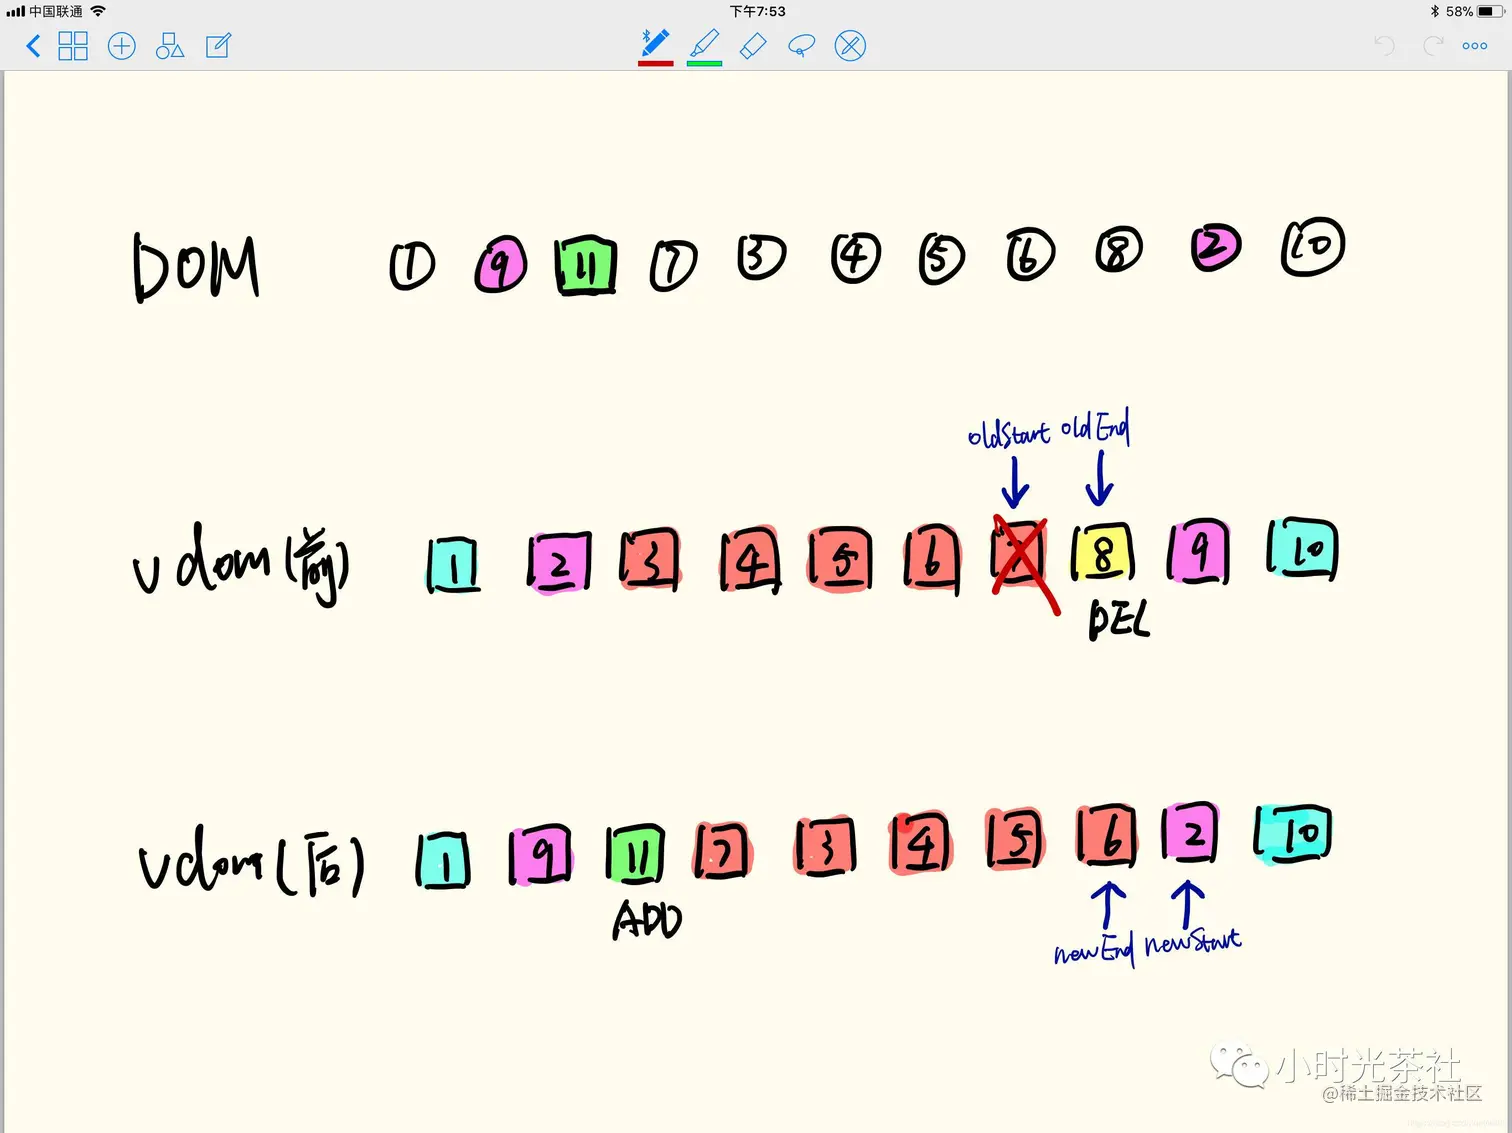 中国联通 下午7:53 58%
DOM 1 9 11 7 3 4 5 6 8 2 10
oldStart oldEnd
vdom(前) 1 2 3 4 5 6 7 8 9 10
DEL
vdom(后) 1 9 11 7 3 4 5 6 2 10
ADD
newEnd newStart
小时光茶社
@稀土掘金技术社区